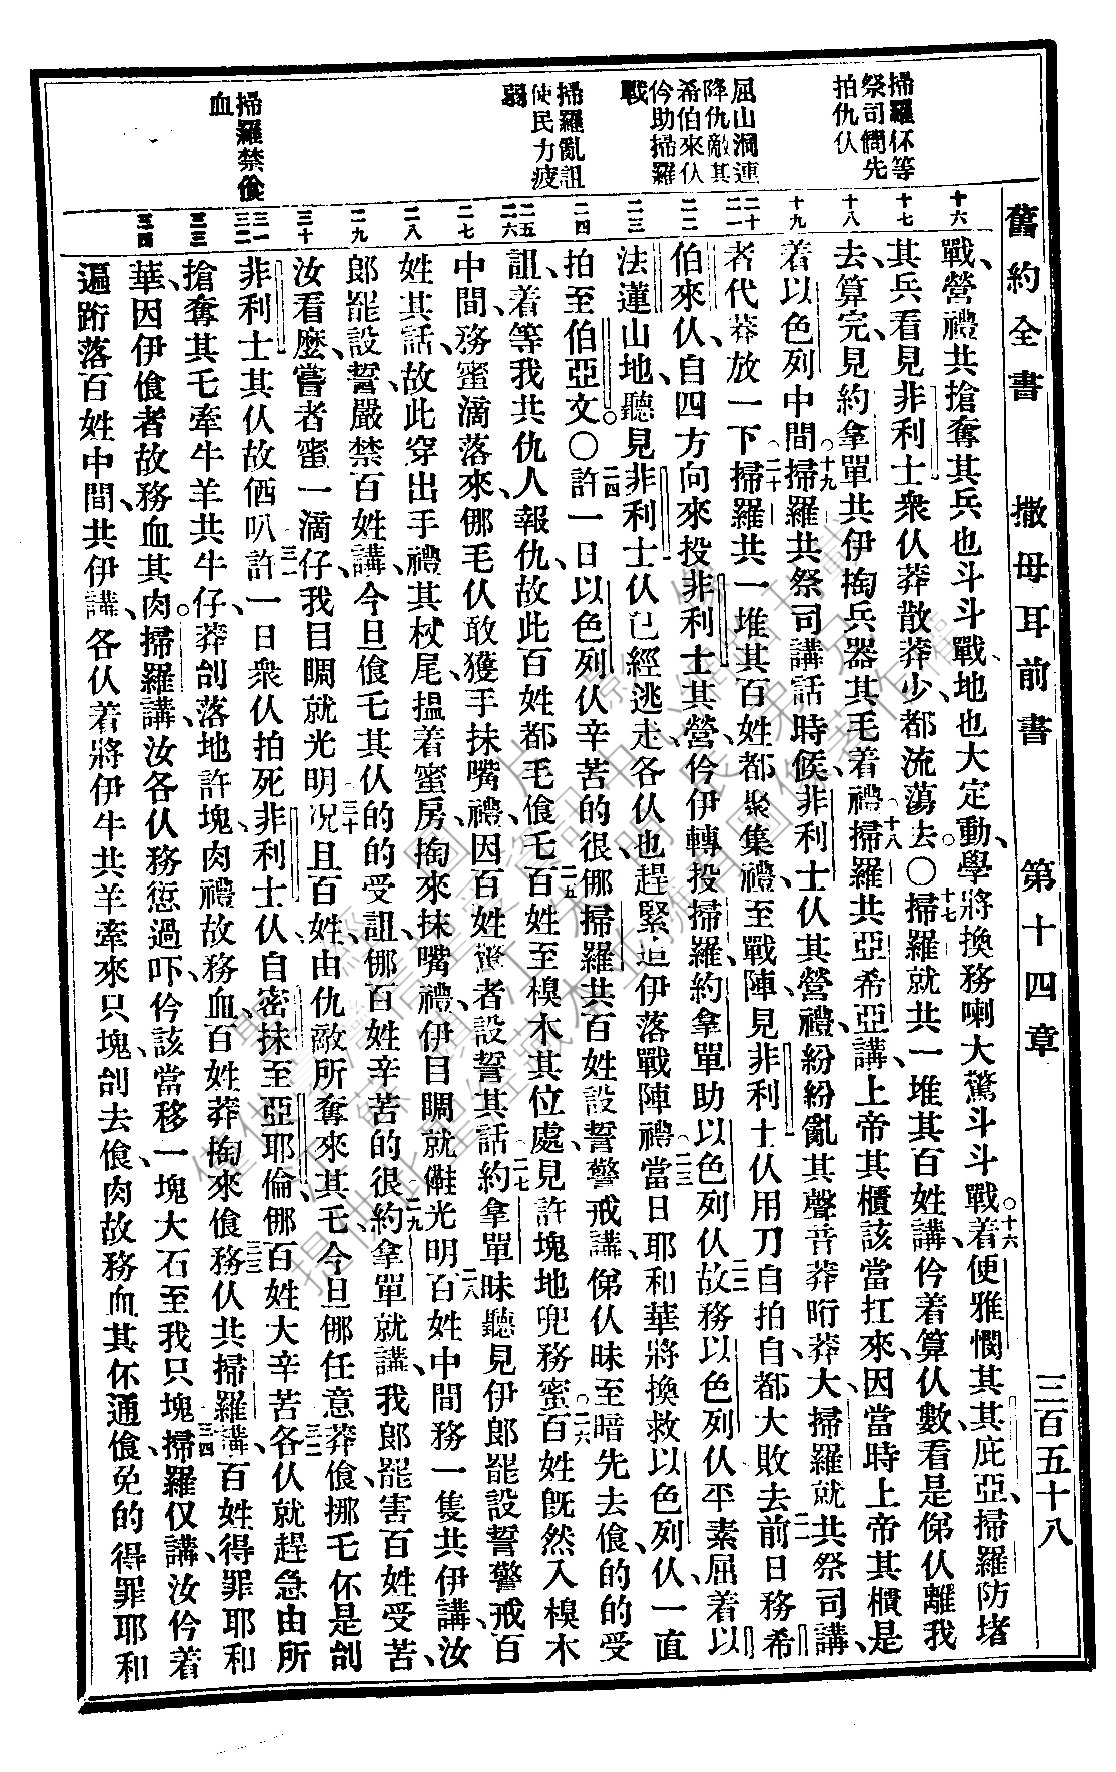 舊約全書 撒母耳前書 第十四章 三百五十八
掃羅伓等
祭司問先
拍仇仈
屈山洞連
降仇敵其
希伯來仈
仱助掃羅
戰
掃羅亂詛
使民力疲
弱
掃羅禁傖
血
十六
十七
十八
十九
二十
二一
二二
二三
二四
二五
二六
二七
二八
二九
三十
三一
三二
三三
三四
戰、營禮共搶奪其兵也斗斗戰、地也大定動、學將換務喇大驚斗斗戰。十六着便雅憫其其庇亞、掃羅防堵
其兵看見非利士衆仈莽散莽少、都流蕩去。〇十七掃羅就共一堆其百姓講、仱着算仈數、看是俤仈離我
去、算完、見約拿單共伊掏兵器其毛着禮。十八掃羅共亞希亞講、上帝其櫃該當扛來、因當時上帝其櫃是
着以色列中間。十九掃羅共祭司講話時候、非利士仈其營禮紛紛亂其聲音莽珩莽大、掃羅就共祭司講、
者代莽放一下。二十掃羅共一堆其百姓、都聚集禮至戰陣、見非利士仈用刀自拍自、都大敗去。二一前日務希
伯來仈自四方向來投非利士其營、仱伊轉投掃羅約拿單助以色列仈。二二故務以色列仈平素屈着以
法蓮山地、聽見非利士仈已經逃走、各仈也趕緊追伊落戰陣禮。二三當日耶和華將換救以色列仈、一直
拍至伯亞文。〇二四許一日以色列仈辛苦的很、㑚掃羅共百姓設誓警戒講、俤仈昧至暗先去傖、的的受
詛、着等我共仇人報仇、故此百姓都毛傖乇。二五百姓至槻木其位處、見許塊地兜務蜜。二六百姓旣然入槻木
中間、務蜜滴落來、㑚毛仈敢獲手抹嘴禮、因百姓驚者設誓其話。二七約拿單昧聽見伊郎罷設誓警戒百
姓其話、故此穿出手禮其杖尾搵着蜜房、掏來抹嘴禮、伊目瞯就𣍐光明。二八百姓中間務一隻共伊講、汝
郎罷設誓、嚴禁百姓講、今旦傖乇其仈的的受詛、㑚百姓辛苦的很。二九約拿單就講、我郎罷害百姓受苦、
汝看麽、嘗者蜜一滴仔、我目瞯就光明。三十况且百姓、由仇敵所奪來其乇、今旦㑚任意莽傖、挪乇伓是刣
非利士其仈故価叭。三一許一日衆仈拍死非利士仈、自密抹至亞耶倫、㑚百姓大辛苦。三二各仈就趕急由所
搶奪其乇牽牛羊共牛仔、莽刣落地許塊、肉禮故務血、百姓莽掏來傖。三三務仈共掃羅講、百姓得罪耶和
華、因伊傖者故務血其肉、掃羅講、汝各仈務愆過吓、仱該當移一塊大石至我只塊。三四掃羅仅講、汝仱着
遍跡落百姓中間、共伊講、各仈着將伊牛共羊牽來只塊、刣去傖、肉故務血其伓通傖、免的得罪耶和